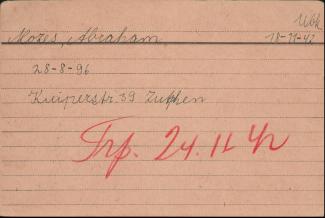 Wbk
Mozes, Abraham, 18-11-42
28-8-96
Kuiperstr. 39 Zutphen
Trp. 24.11 42